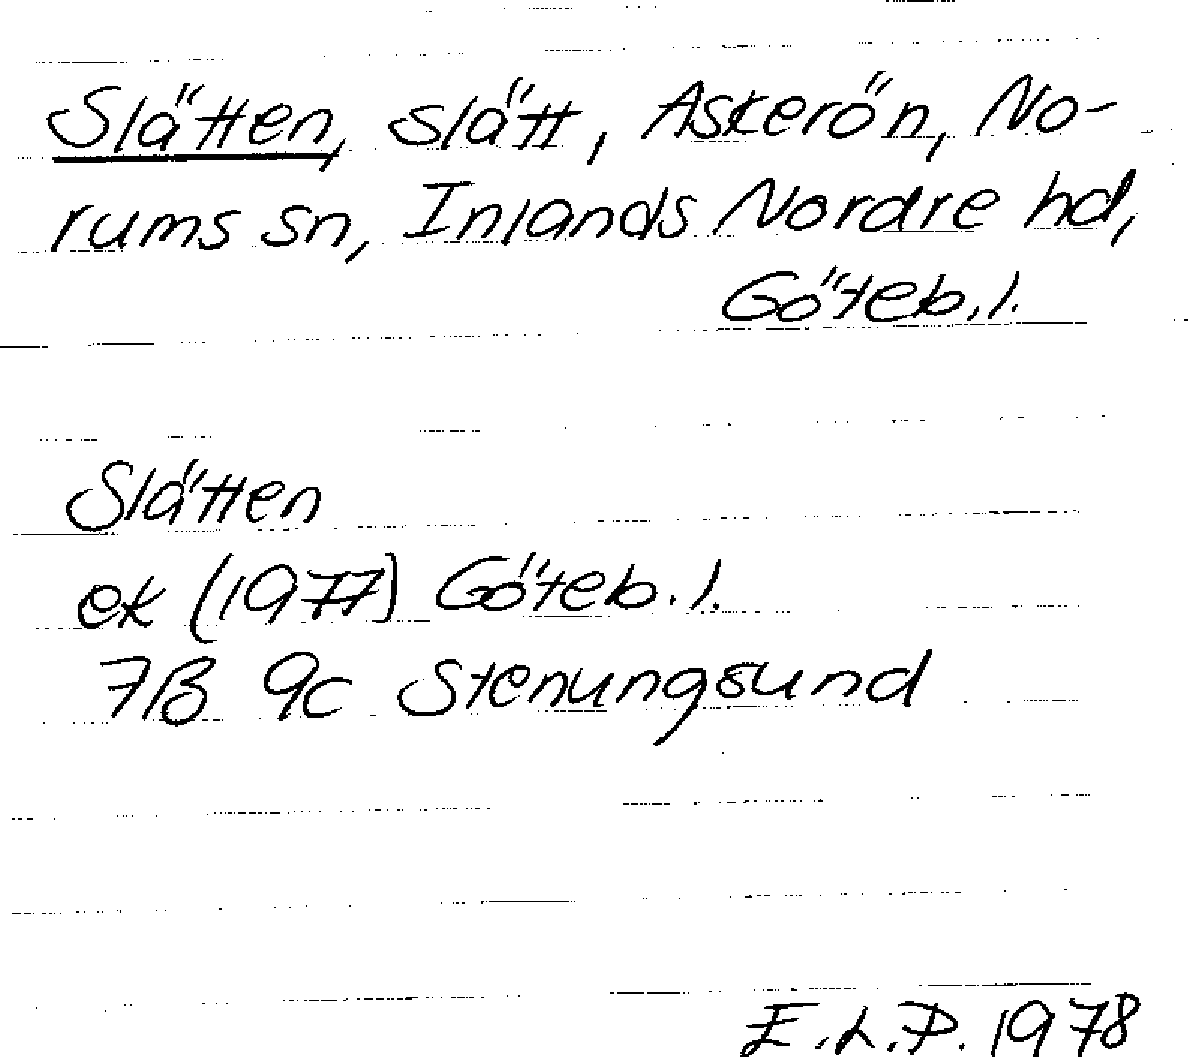 Slätten, slätt, Askerön, No-
rums sn, Inlands Nordre hd,
Göteb. l.
Slätten
ek (1977) Göteb. l.
7B 9c Stenungsund
E.L.P. 1978